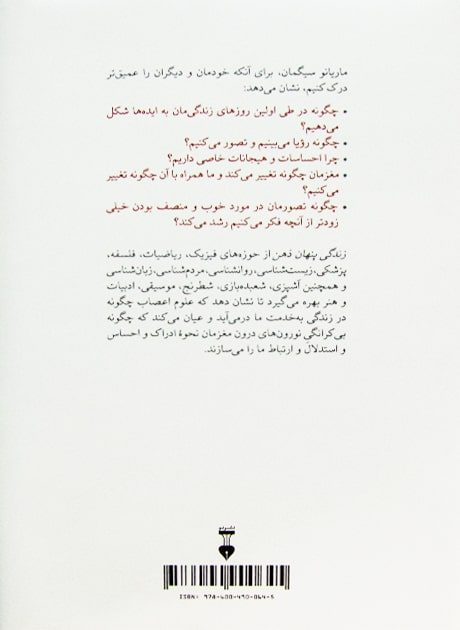 ماریانو سیگمان، برای آنکه خودمان و دیگران را عمیق‌تر
درک کنیم، نشان می‌دهد:
• چگونه در طی اولین روزهای زندگی‌مان به ایده‌ها شکل
می‌دهیم؟
• چگونه رؤیا می‌بینیم و تصور می‌کنیم؟
• چرا احساسات و هیجانات خاصی داریم؟
• مغزمان چگونه تغییر می‌کند و ما همراه با آن چگونه تغییر
می‌کنیم؟
• چگونه تصورمان در مورد خوب و منصف بودن خیلی
زودتر از آنچه فکر می‌کنیم رشد می‌کند؟
زندگی پنهان ذهن از حوزه‌های فیزیک، ریاضیات، فلسفه،
پزشکی، زیست‌شناسی، روانشناسی، مردم‌شناسی، زبان‌شناسی
و همچنین آشپزی، شعبده‌بازی، شطرنج، موسیقی، ادبیات
و هنر بهره می‌گیرد تا نشان دهد که علوم اعصاب چگونه
در زندگی به‌خدمت ما درمی‌آید و عیان می‌کند که چگونه
بی‌کرانگی نورون‌های درون مغزمان نحوهٔ ادراک و احساس
و استدلال و ارتباط ما را می‌سازند.
نشر نو
ISBN: 978-600-490-064-5